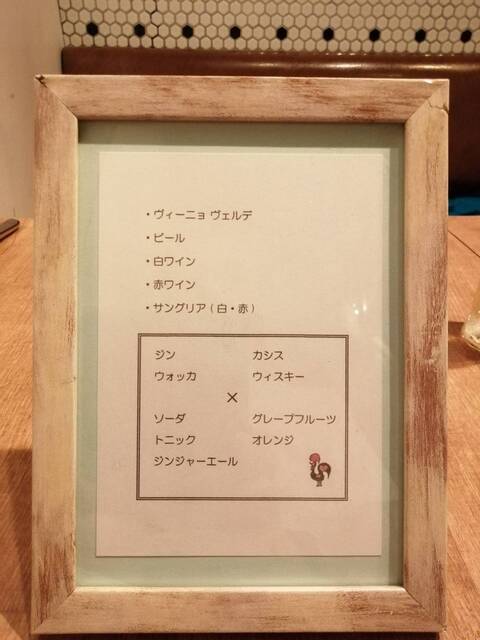 ・ヴィーニョ ヴェルデ
・ビール
・白ワイン
・赤ワイン
・サングリア ( 白・赤 )
ジン カシス
ウォッカ ウィスキー
×
ソーダ グレープフルーツ
トニック オレンジ
ジンジャーエール